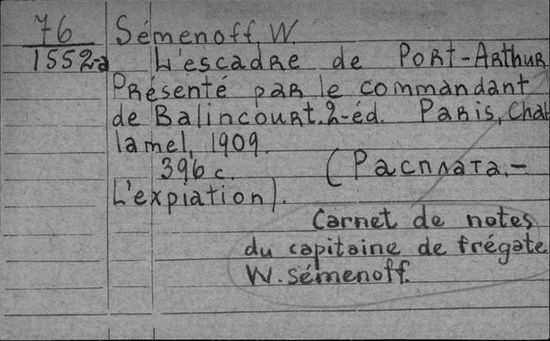 76
1552-a
Sémenoff W.
L'escadre de Port-Arthur
Présenté par le commandant
de Balincourt. 2-éd. Paris, Chal
lamel, 1909.
396 c. (Расплата.-
L'expiation).
Carnet de notes
du capitaine de frégate
W. Sémenoff.